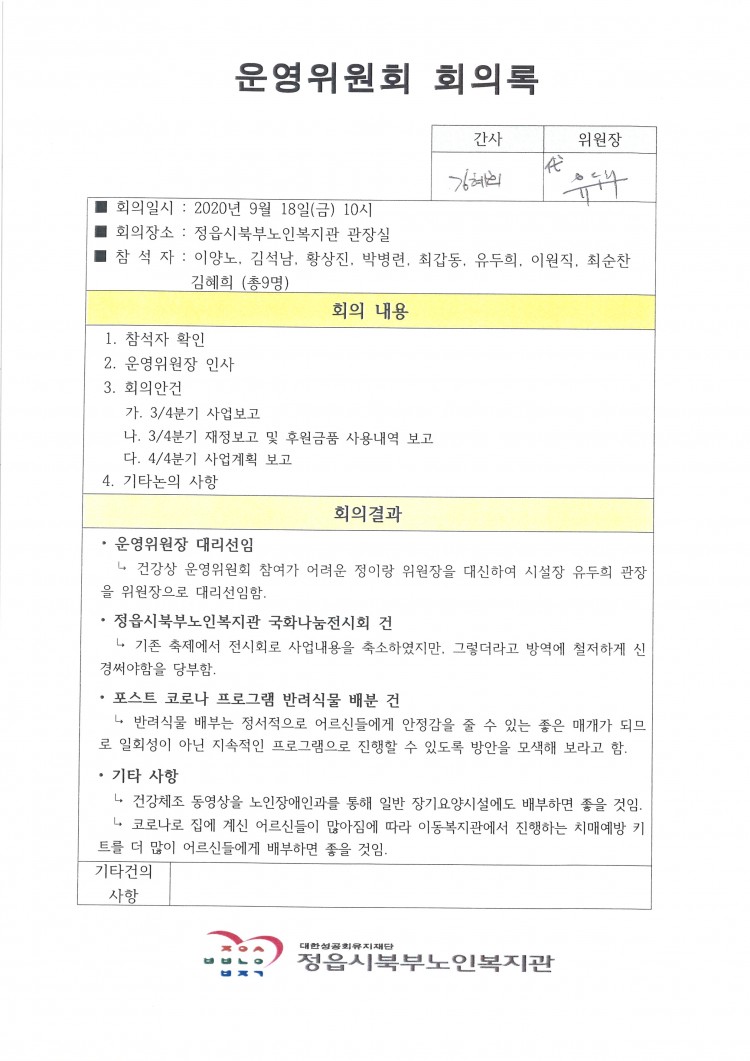 운영위원회 회의록
간사 위원장
김혜희 代 유두희
■ 회의일시 : 2020년 9월 18일(금) 10시
■ 회의장소 : 정읍시북부노인복지관 관장실
■ 참 석 자 : 이양노, 김석남, 황상진, 박병련, 최갑동, 유두희, 이원직, 최순찬
김혜희 (총9명)
회의 내용
1. 참석자 확인
2. 운영위원장 인사
3. 회의안건
가. 3/4분기 사업보고
나. 3/4분기 재정보고 및 후원금품 사용내역 보고
다. 4/4분기 사업계획 보고
4. 기타논의 사항
회의결과
· 운영위원장 대리선임
↳ 건강상 운영위원회 참여가 어려운 정이랑 위원장을 대신하여 시설장 유두희 관장
을 위원장으로 대리선임함.
· 정읍시북부노인복지관 국화나눔전시회 건
↳ 기존 축제에서 전시회로 사업내용을 축소하였지만, 그렇더라고 방역에 철저하게 신
경써야함을 당부함.
· 포스트 코로나 프로그램 반려식물 배분 건
↳ 반려식물 배부는 정서적으로 어르신들에게 안정감을 줄 수 있는 좋은 매개가 되므
로 일회성이 아닌 지속적인 프로그램으로 진행할 수 있도록 방안을 모색해 보라고 함.
· 기타 사항
↳ 건강체조 동영상을 노인장애인과를 통해 일반 장기요양시설에도 배부하면 좋을 것임.
↳ 코로나로 집에 계신 어르신들이 많아짐에 따라 이동복지관에서 진행하는 치매예방 키
트를 더 많이 어르신들에게 배부하면 좋을 것임.
기타건의
사항
ㅈㅇㅅ
ㅂㅂㄴㅇ
ㅂㅈㄱ
대한성공회유지재단
정읍시북부노인복지관